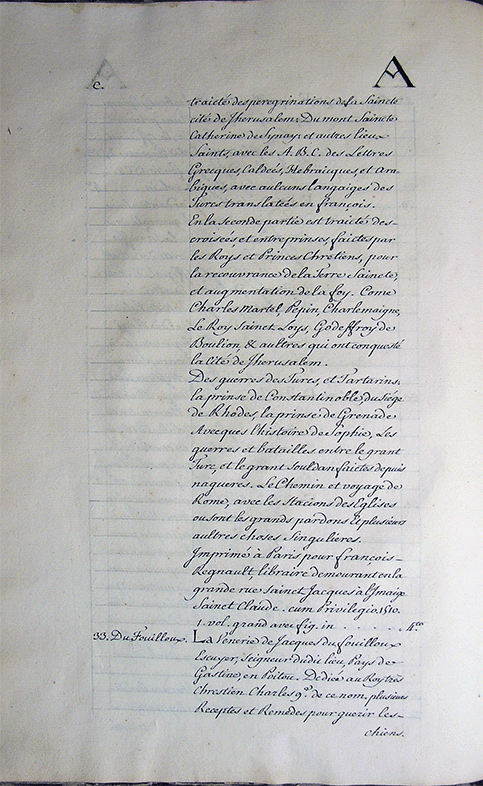 A
c.
traicté des peregrinations de la Saincte
cité de Jherusalem. Du mont Saincte
Catherine de Synay, et autres lieux
Saints, avec les A. B. C. des Lettres
Grecques, Caldeés, Hebraicques, et Ara-
biques, avec aulcuns langaiges des
Turcs translatées en françois.
En la seconde partie est traicté des-
croiseés, et entreprinses faictes par
les Roys et Princes Chrétiens, pour
la recouvrance de la Terre Saincte,
et augmentation de la foy. Come
Charles Martel, Pepin, Charlemaigne,
Le Roy Sainct Loys, Godeffroy de
Boulion, & aultres qui ont conquesté
la Cité de Jherusalem.
Des guerres des Turcs, et Tartarins.
la prinse de Constantinoble, du Siege
de Rhodes, la prinse de Grenade
Avecques l'histoire de Sophie, Les
guerres et batailles entre le grant
Turc, et le grant Souldan faictes depuis
nagueres. Le Chemin et voyage de
Rome, avec les Stacions des Eglises
ou sont les grands pardons et plusieurs
aultres choses Singulières.
Imprimé à Paris pour françois-
Regnault, libraire demourant en la
grande rue Sainct Jacques à l'Jmaige
Sainct Claude. cum Privilegio. 1510.
1. vol. grand avec fig. in . . . . . 4.to
33. Du Fouilloux. La Venerie de Jacques du fouilloux
Escuyer, Seigneur dudit lieu, Pays de
Gastine, en Poitou. Dediée au Roy très
Chrestien Charles 9e. de ce nom. plusieurs
Receptes et Remèdes pour guerir les-
chiens.